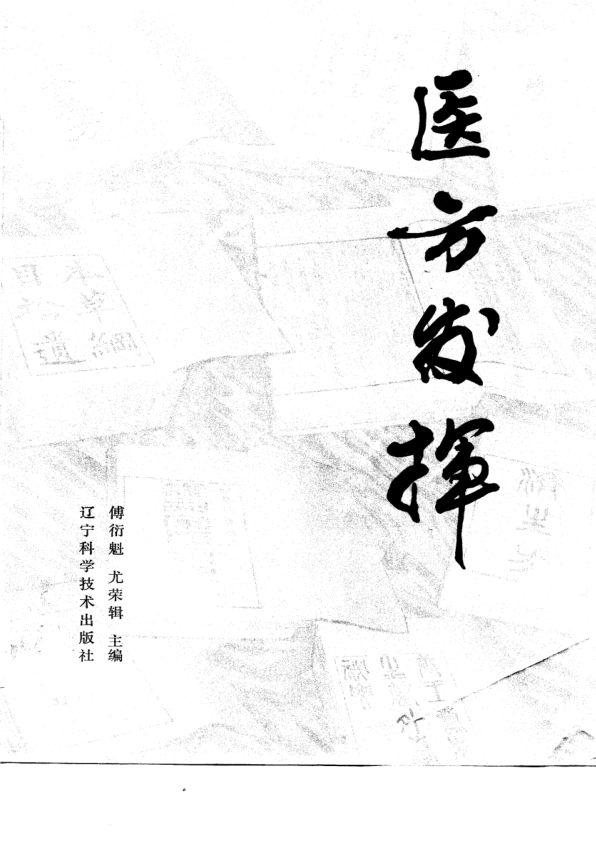 医方发挥
傅衍魁 尤荣辑 主编
辽宁科学技术出版社